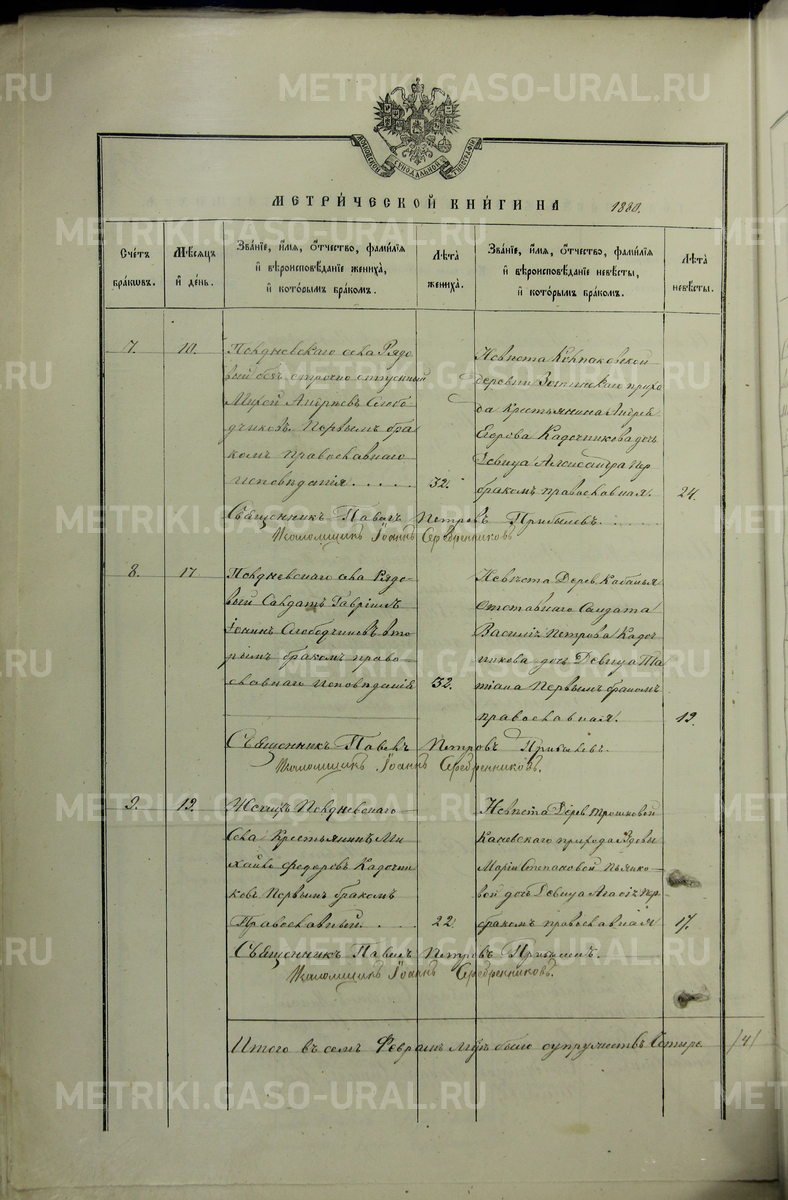 METRIKI.GASO-URAL.RU
МОСКОВСКОЙ СѴНОДАЛЬНОЙ ТИПОГРАФІИ
МЕТРИ́ЧЕСКОЙ КНИ́ГИ НА 1880.
Сче́тъ бра́кѡвъ.
Мѣ́сѧцъ и҆ де́нь.
Зва́нїе, и҆́мѧ, ѻ҆́тчество, фами́лїѧ и҆ вѣроисповѣ́данїе жениха̀, и҆ кото́рымъ бра́комъ.
Лѣ́та жениха̀.
Зва́нїе, и҆́мѧ, ѻ҆́тчество, фами́лїѧ и҆ вѣроисповѣ́данїе невѣ́сты, и҆ кото́рымъ бра́комъ.
Лѣ́та невѣ́сты.
7. 10.
села Рядо
вый безсрочно отпускный
Андреевъ Слобо
дчиковъ. Первымъ бра
комъ православнаго
исповѣданія . . . . . 32.
Невѣста
деревни прихо
да Крестьянина Андрея
Егорова Кадочникова дочь
Девица Александра пер
бракомъ православная. 24.
Священникъ Павелъ Петровъ Прибылевъ . . . . .
Псаломщикъ Іоаннъ Серебренниковъ
8. 17
села Рядо-
вый Солдатъ Гавріилъ
Іонинъ Слободчиковъ вто
рымъ бракомъ право-
славнаго исповѣданія 32.
Невѣста Дерев. Кабаньей
Отставнаго Солдата
Василія Петрова Кадоч
никова дочь Девица Та
тіана первымъ бракомъ
православная. 19.
Священникъ Павелъ Петровъ Прибылевъ.
Псаломщикъ Іоаннъ Серебренниковъ.
9. 19.
Женихъ
Села Крестьянинъ Ми
хаилъ Федоровъ Кадочни
ковъ Первымъ бракомъ
Православный. . . . 22
Невѣста Дерев
прихода Вдовы
Маріи Степановой
вой дочь Девица пер
бракомъ православная 17.
Священникъ Павелъ Петровъ Прибылевъ.
Псаломщикъ Іоаннъ Серебренниковъ.
Итого въ семъ Февралѣ м-цѣ было супружествъ Четыре. /4/